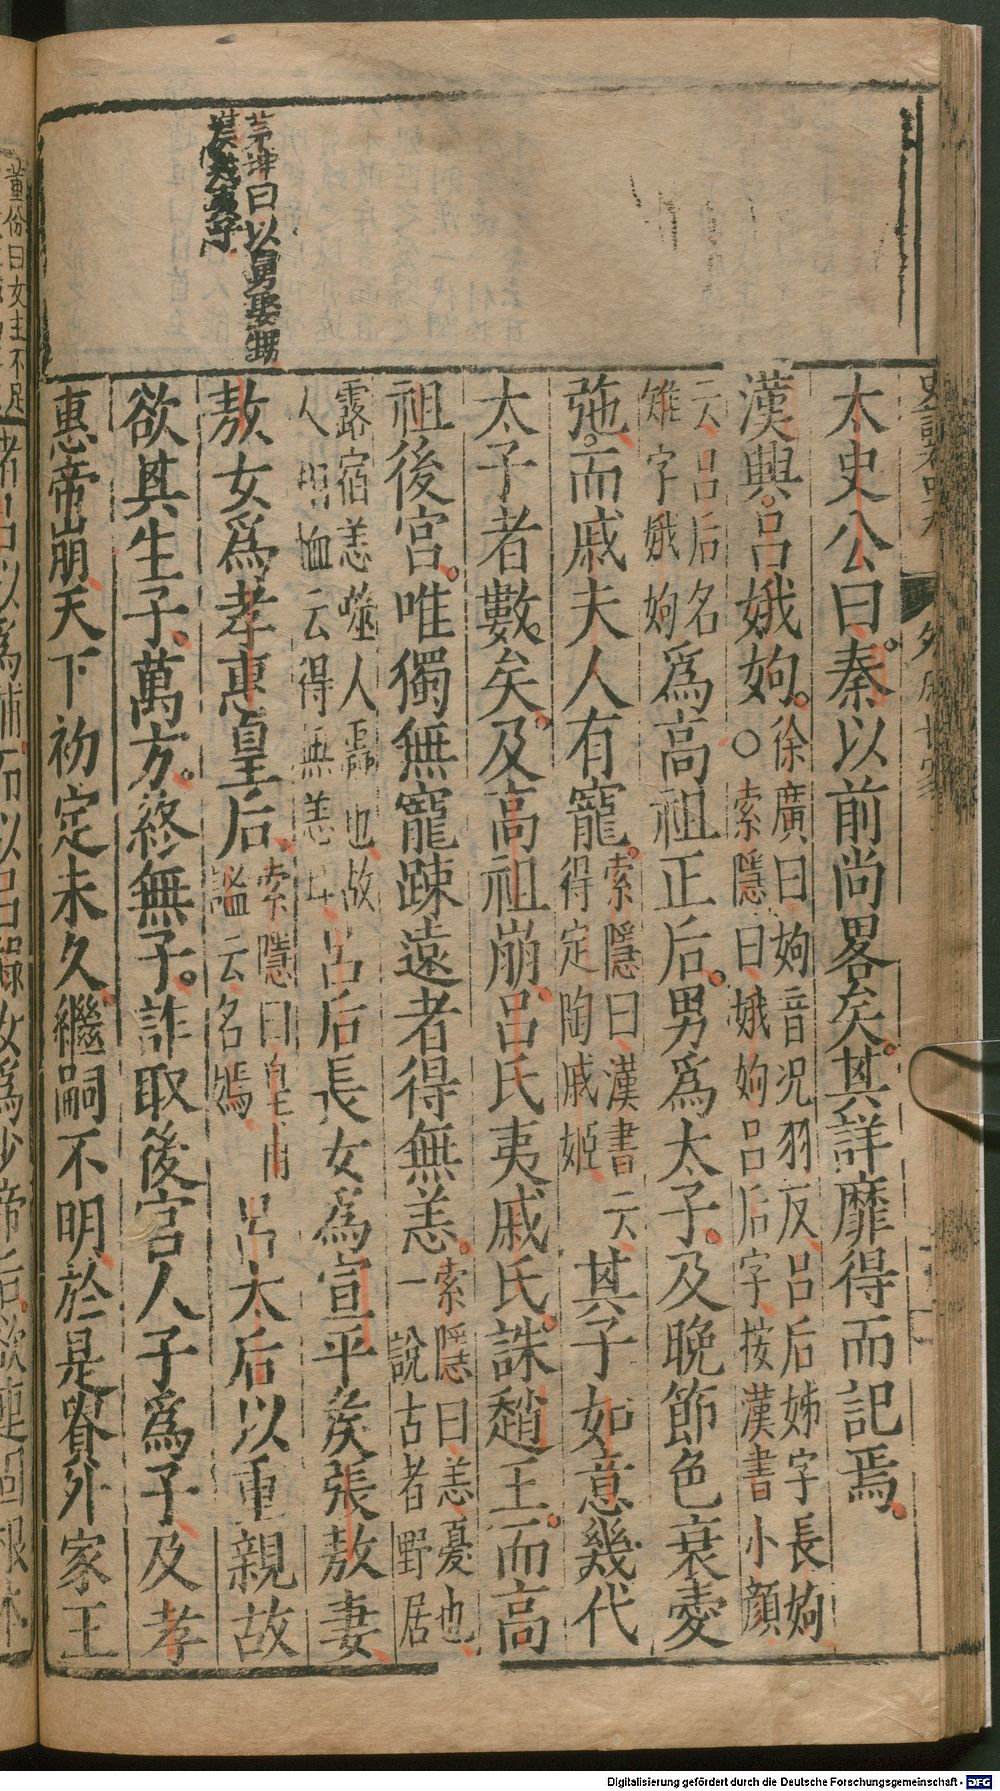 太史公曰秦以前尚畧矣其詳靡得而記焉
漢興呂娥姁徐廣曰姁音況羽反呂后姊字長姁〇索隱曰娥姁呂后字按漢書小顔
云呂后名雉字娥姁爲高祖正后男爲太子及晚節色衰愛
弛而戚夫人有寵索隱曰漢書云得定陶戚姬其子如意幾代
太子者數矣及高祖崩呂氏夷戚氏誅趙王而高
祖後宮唯獨無寵踈遠者得無恙索隱曰恙憂也一說古者野居
露宿恙噬人蟲也故人相恤云得無恙乎呂后長女爲宣平矦張敖妻
敖女爲孝惠皇后索隱曰皇甫謐云名嫣呂太后以重親故
欲其生子萬方終無子詐取後宮人子爲子及孝
惠帝崩天下初定未久繼嗣不明於是貴外家王
茅坤曰以舅娶甥
董份曰女主不足
Digitalisierung gefördert durch die Deutsche Forschungsgemeinschaft - DFG